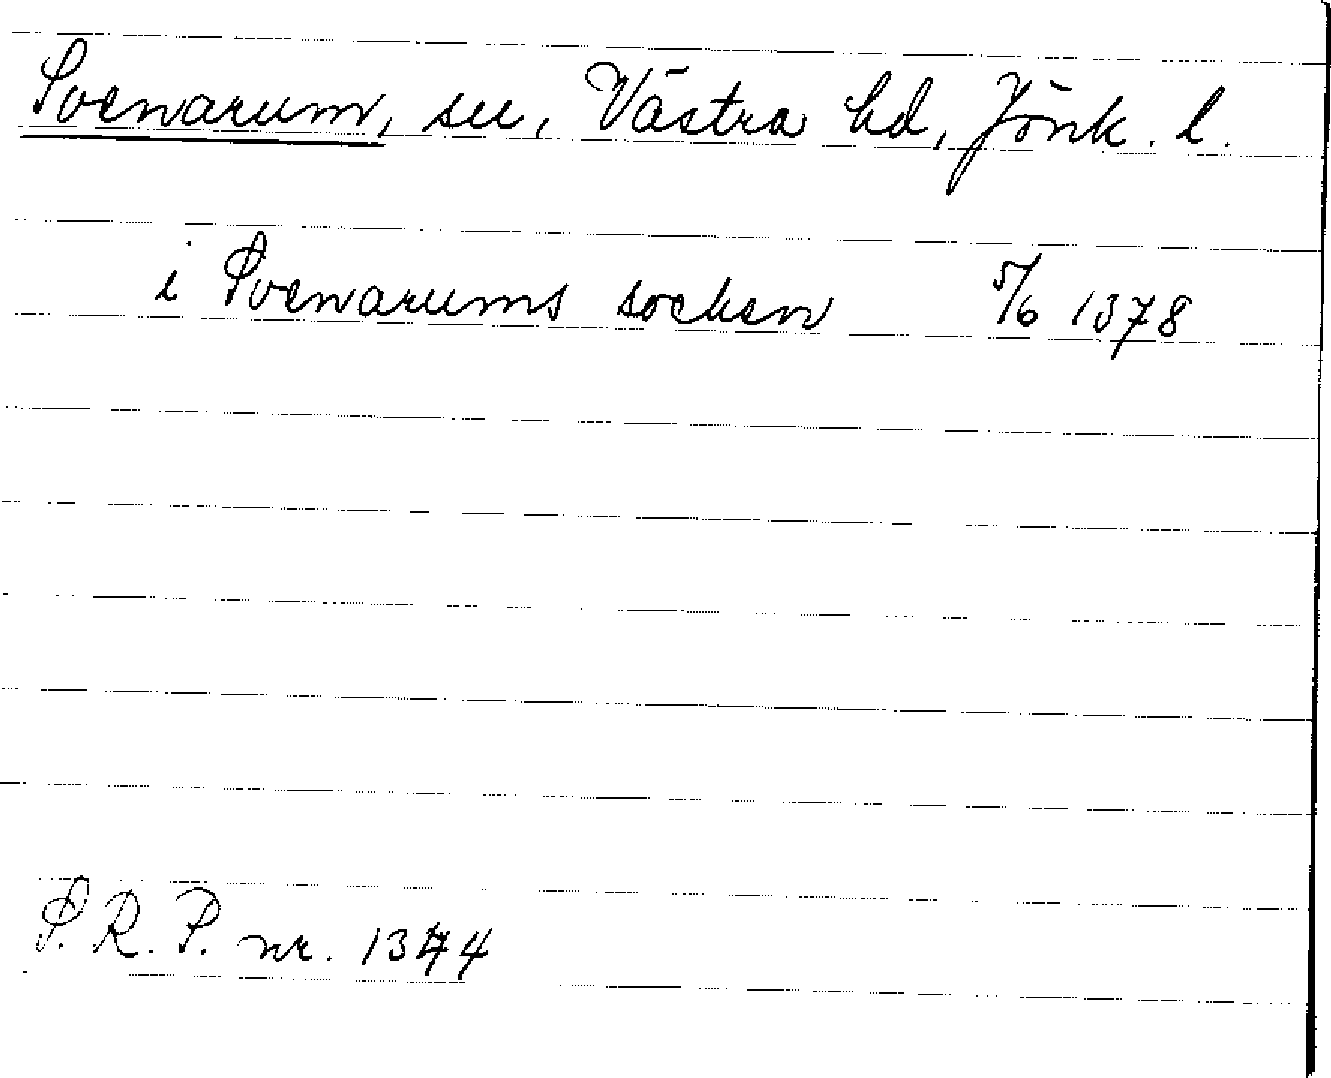 Svenarum, sn, Västra hd, Jönk. l.
i Svenarums socken 5/6 1378
S. R. P. nr. 1344